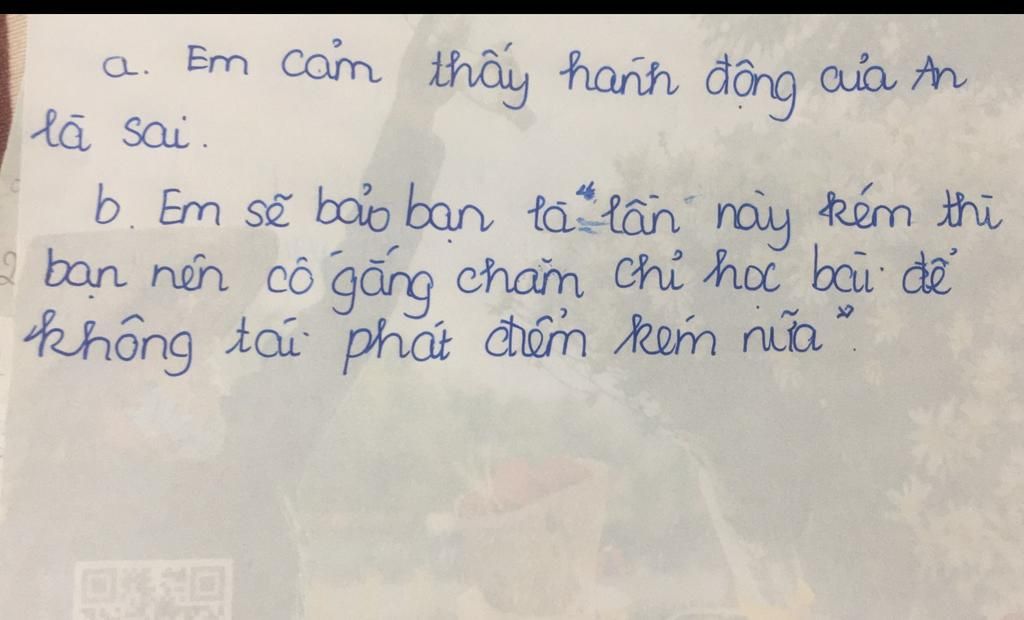 a. Em cảm thấy hành động của An
là sai.
b. Em sẽ bảo bạn là "lần này kém thì
bạn nên cố gắng chăm chỉ học bài để
không tái phát điểm kém nữa".